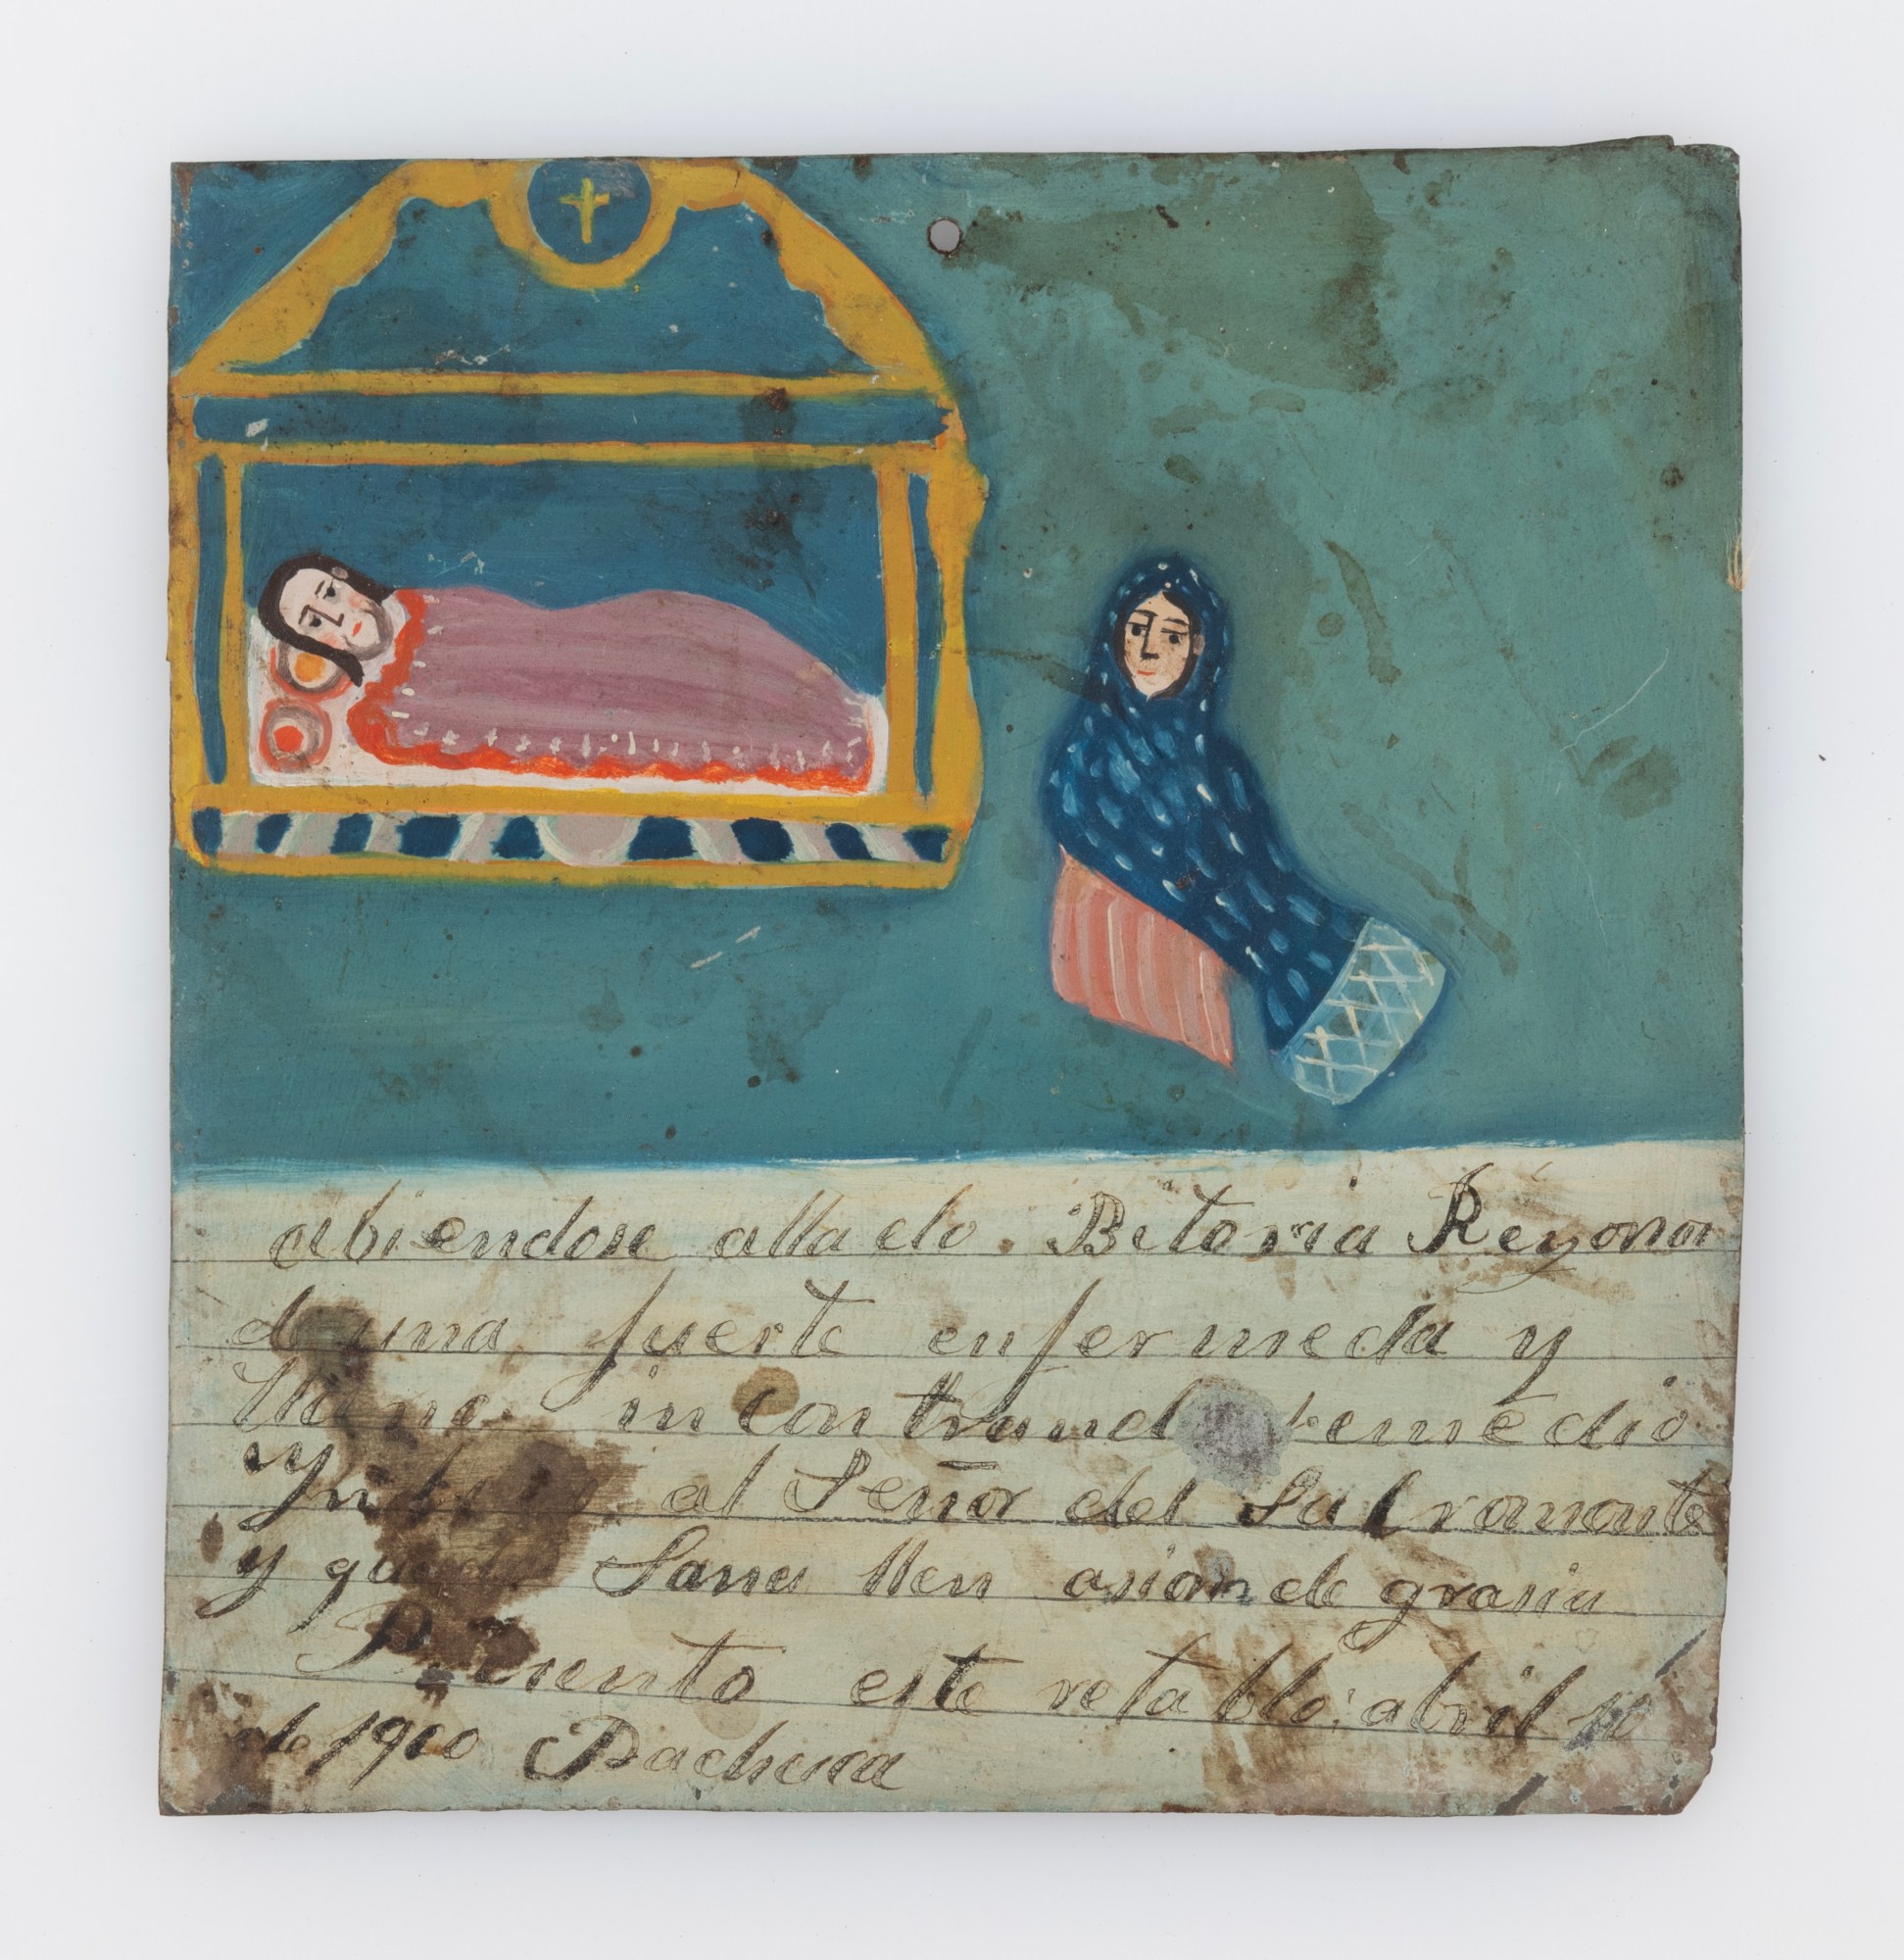 abiendose allado. Betoria Reyona
de una fuerte enfermeda y
llano incontrand remedio
al Señor del Salramonte
y Sana llen asion de grasia
este retablo: abril 10
de 1900 Pachuca